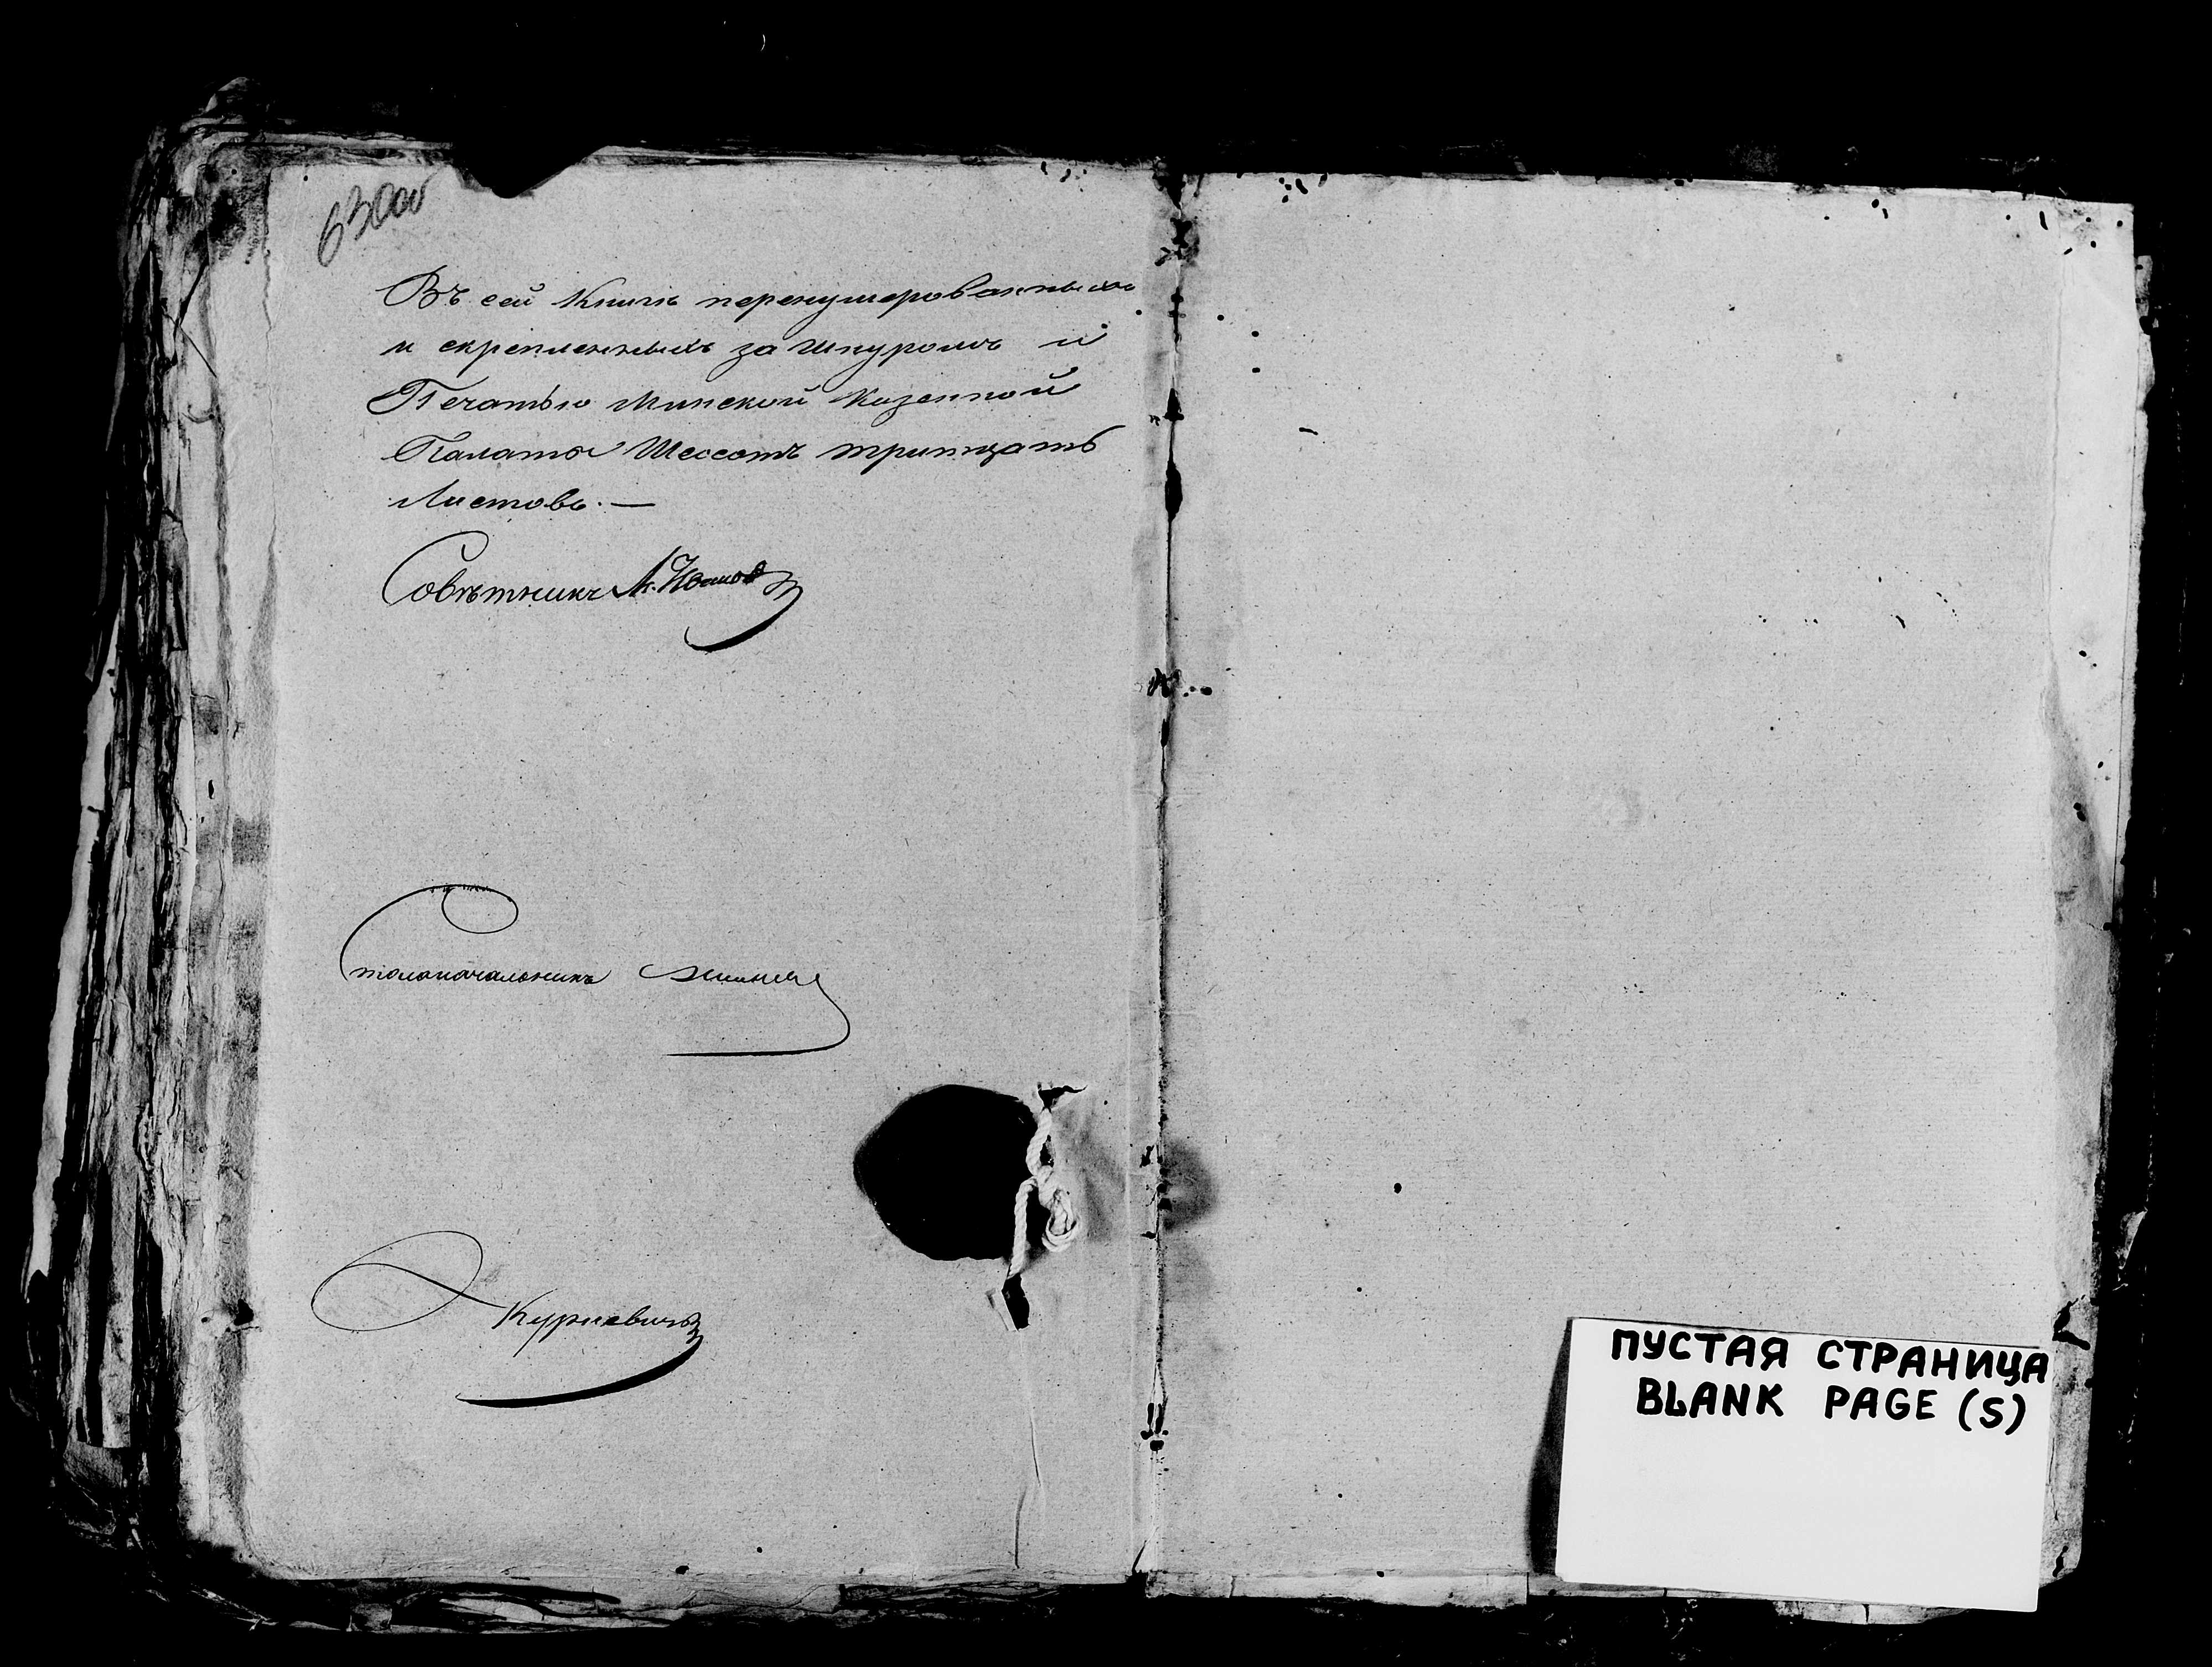 630 об
Въ сей Книгѣ перенумерованныхъ
и скрепленныхъ за шнуромъ и
Печатью Минской Казенной
Палаты Шессотъ тритцать
Листовъ. —
Совѣтникъ
Столоначальникъ
Курневичъ
ПУСТАЯ СТРАНИЦА
BLANK PAGE (S)